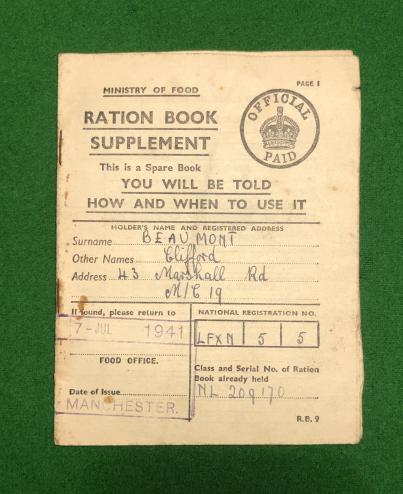 MINISTRY OF FOOD
PAGE 1
RATION BOOK
SUPPLEMENT
OFFICIAL
PAID
This is a Spare Book
YOU WILL BE TOLD
HOW AND WHEN TO USE IT
HOLDER'S NAME AND REGISTERED ADDRESS
Surname BEAUMONT
Other Names Clifford
Address 43 Marshall Rd
M/C 19
If found, please return to
7-JUL 1941
FOOD OFFICE.
Date of Issue
MANCHESTER.
NATIONAL REGISTRATION NO.
LFXN 5 5
Class and Serial No. of Ration
Book already held
NL 209170
R.B. 9